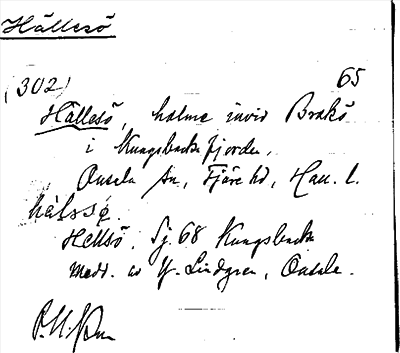 Hällesö
(302) 65
Hällesö, holme invid Brokö
i Kungsbackafjorden.
Onsala sn, Fjäre hd, Hall. l.
hälssø.
Hellsö. Sj. 68 Kungsbacka
Medd. av Y. Lindgren, Onsala.